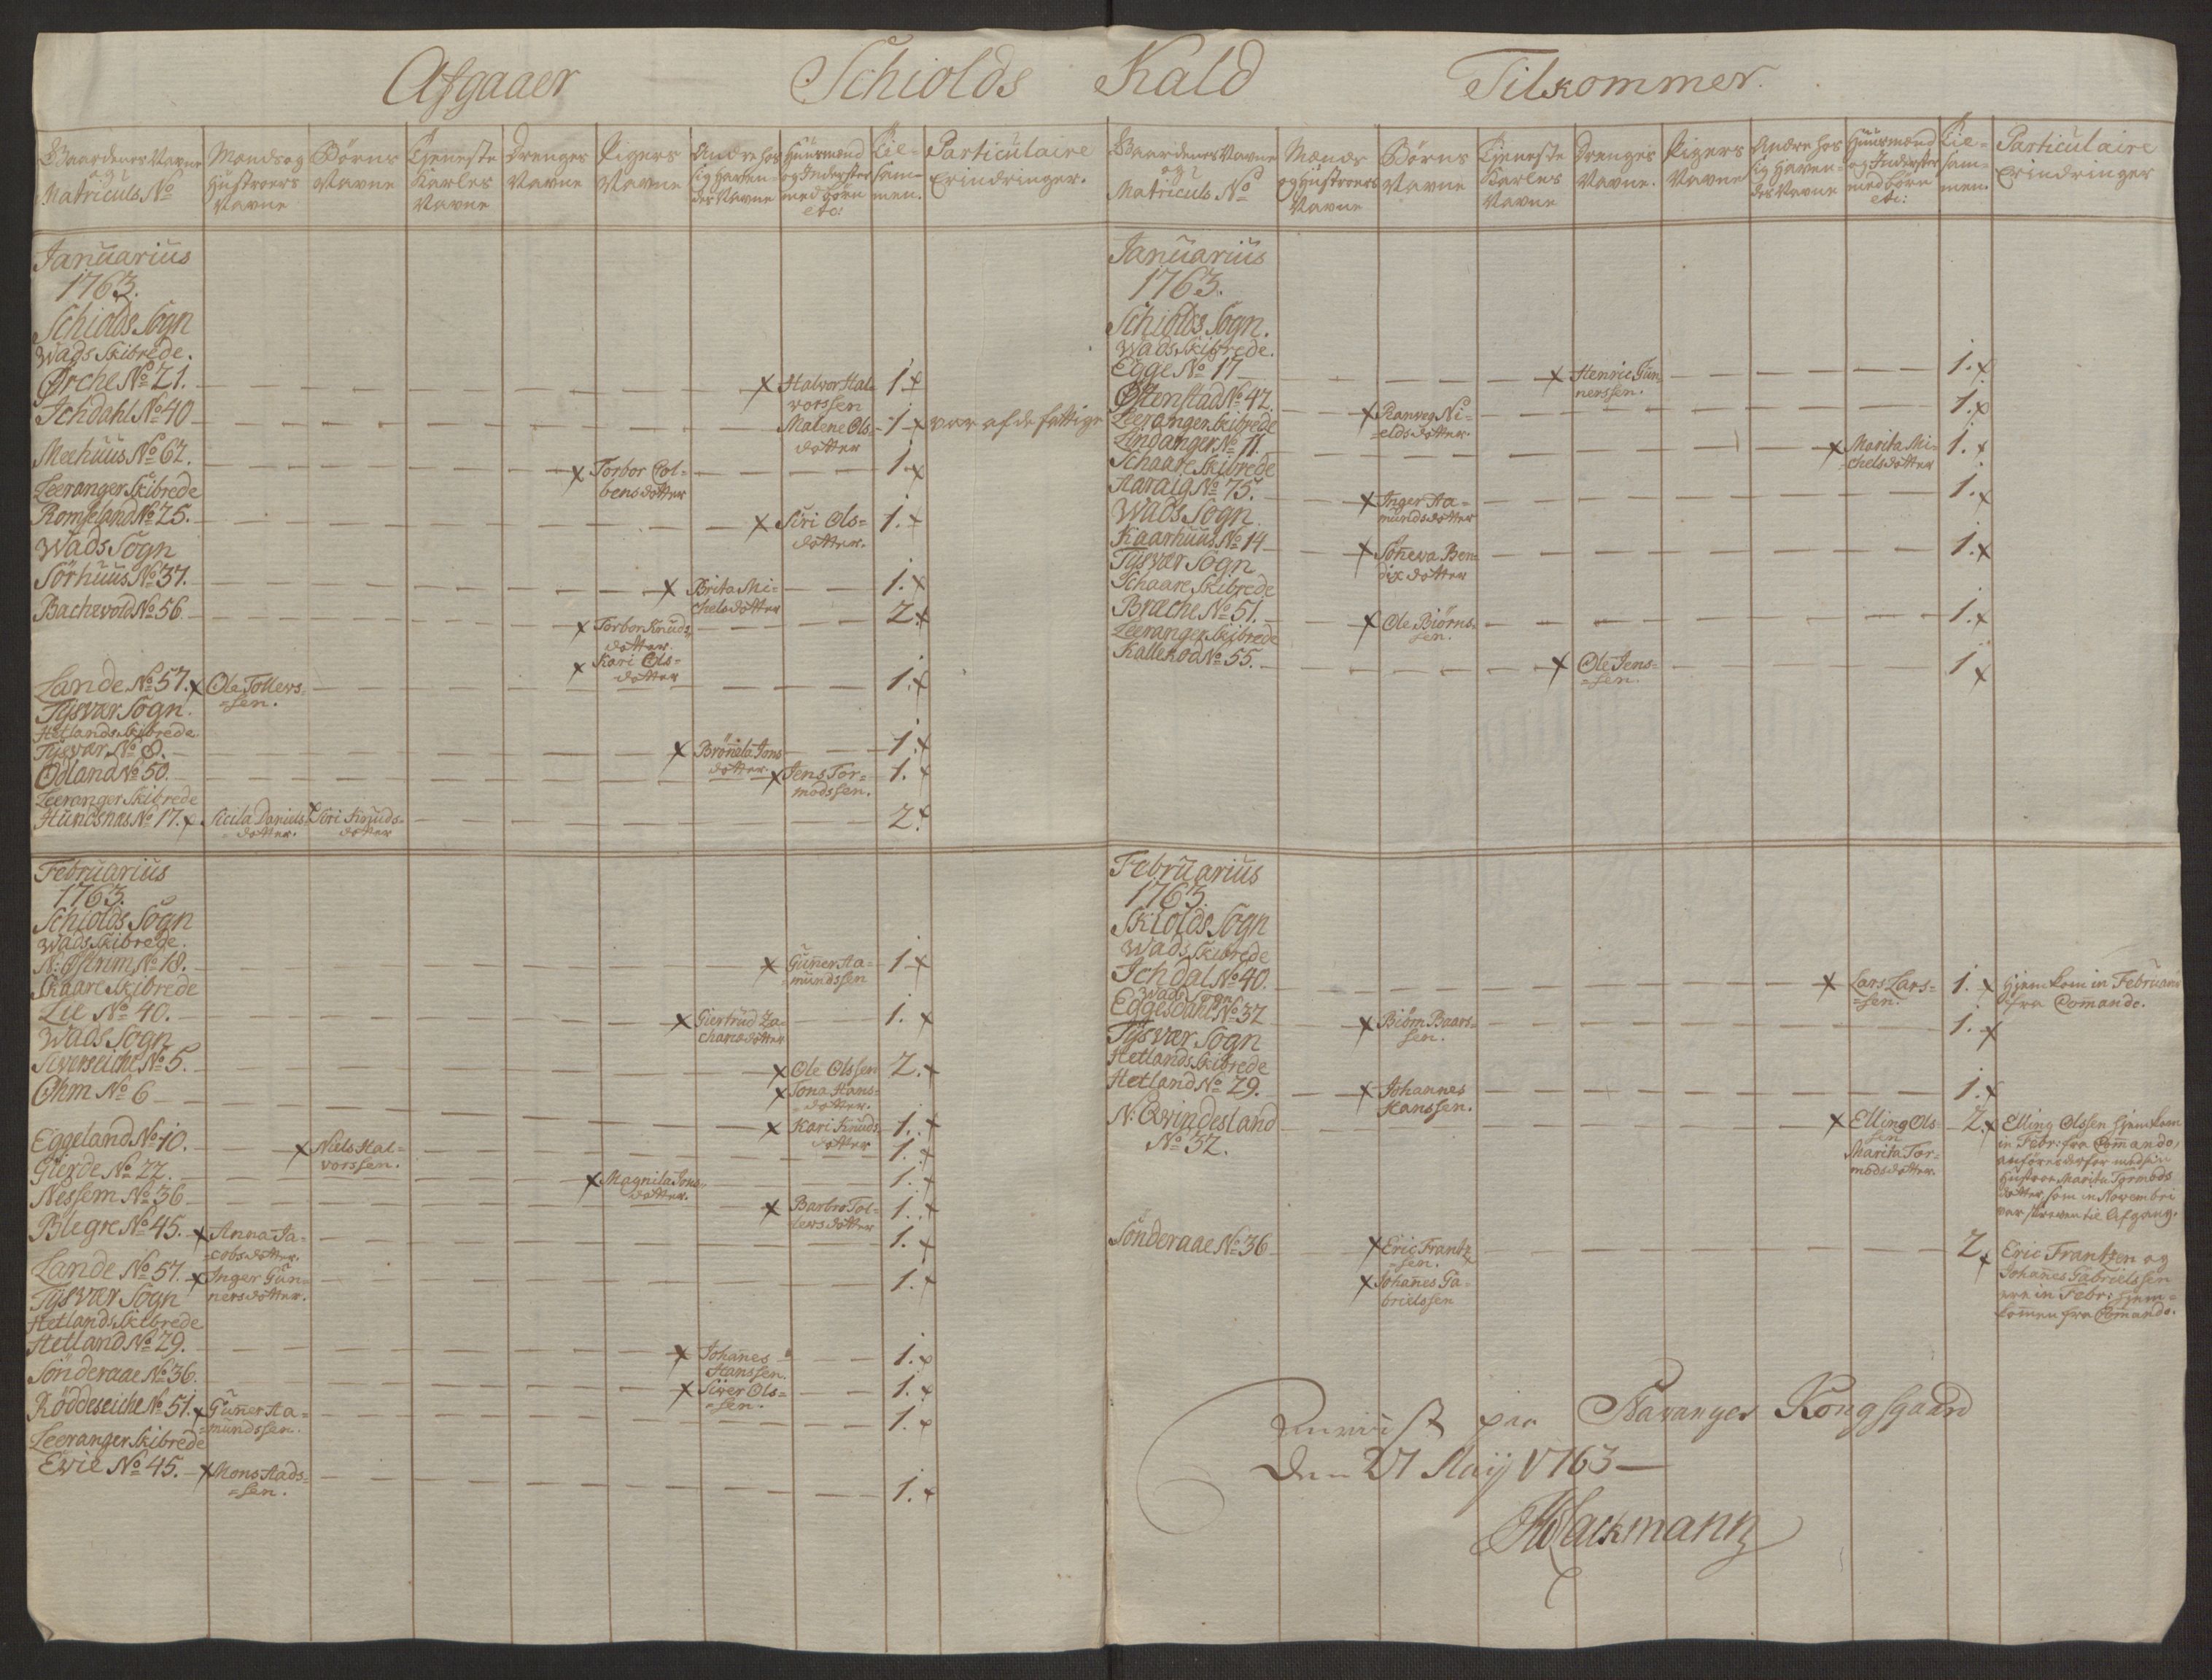 Afgaaer Schiolds Kald Tilkommer.
Gaardenes Navne og Matriculs No
Mænds og Hustroers Navne
Børns Navne
Tjeneste Karles Navne
Drenges Navne
Pigers Navne
Andre hos sig havendes Navne
Huusmænd og Inderster med børn etc:
Tilsammen.
Particulaire Erindringer.
Januarius
1763.
Schiolds Sogn
Wads Skibrede.
Ørche No 21. x Halvor Hal=
vorssen 1. x
Ichdahl No 40 Malene Ols=
dotter 1. x var af de fattige
Meehuus No 62. x Torbor Col=
bensdotter 1. x
Leeranger Skibrede
Romseland No 25. x Siri Ols=
dotter. 1. x
Wads Sogn
Sørhuus No 37. x Brita Mi=
chelsdotter 1. x
Bachevold No 56. x Torbor Knuds
dotter. 2 x
x Kari Ols=
dotter
Lande No 57. x Ole Tollevs=
=sen. 1. x
Tysvær Sogn.
Hetlands Skibrede
Tysvær No 8. x Brönela Jons
dotter. 1. x
Odland No 50. x Jens Tor=
modssen. 1. x
Leeranger Skibrede
Hundsnæs No 17. x Sicila Daniels=
dotter. x Siri Knuds=
dotter 2. x
Februarius
1763.
Schiolds Sogn
Wads Skibrede.
N: Østrem No 18. x Guner Aa=
=mundssen 1. x
Skaare Skibrede
Lie No 40. x Giertrud Za=
chariadotter 1. x
Wads Sogn
Siverseicht No 5. x Ole Olssen 2. x
x Tona Hans=
dotter.
Ohm No 6 x Kari Knuds
dotter 1. x
Eggeland No 10. x Niels Hal=
vorssen. 1. x
Gierde No 22. x Magnila Jons
dotter. 1. x
Nessem No 36 x Barbro Tol=
levsdotter 1. x
Blegre No 45. x Anna Ja=
=cobsdotter. 1. x
Lande No 57. x Inger Gun=
nersdotter. 1. x
Tysvær Sogn
Hetlands Skibrede
Hetland No 29. x Johanes
Hanssen. 1. x
Sönderaae No 36. x Siver Ols=
=sen. 1. x
Röddeseicht No 51. x Guner Aa=
=mundssen. 1. x
Leeranger Skibrede
Evie No 45. x Mons Aads=
=sen. 1. x
Gaardenes Navne og Matriculs No
Mænds og Hustroers Navne
Børns Navne
Tjeneste Karles Navne
Drenges Navne.
Pigers Navne
Andre hos sig havendes Navne
Huusmænd og Inderster med børn etc:
Tilsammen.
Particulaire Erindringer
Januarius
1763.
Schiolds Sogn.
Wads Skibrede.
Egge No 17 x Henric Gun
nerssen. 1. x
Østenstad No 42. x Ranveg Ni=
=elsdotter. 1. x
Leeranger Skibrede
Lindanger No 11. x Marita Mi=
chelsdotter 1. x
Schaare Skibrede
Aaraig No 75. x Inger Aa=
mundsdotter 1. x
Wads Sogn.
Kaarhuus No 14 x Söneva Ben=
dixdotter 1. x
Tysvær Sogn
Schaare Skibrede
Bræche No 51. x Ole Biörns=
sen. 1. x
Leeranger Skibrede
Kallekod No 55. x Ole Jens=
=sen. 1 x
Februarius
1763.
Skiolds Sogn
Wads Skibrede
Ichdal No 40. x Lars Lars=
=sen. 1. x Hjemkom in Februario
fra Comando.
Wads Sogn
Eggesdahl No 32 x Biörn Baars=
sen. 1. x
Tysvær Sogn
Hetlands Skibrede
Hetland No 29. x Johannes
Hanssen. 1. x
N: Qvindesland
No 32. x Elling Ols
sen
Marita Tor=
modsdotter. 2. x Elling Olssen hjemkom
in Febr: fra Comando,
anföres derfor med sin
Hustroe Marita Tormods
dotter, som in Novembri
var skreven til Afgang.
Sönderaae No 36 x Eric Frantz
=sen.
x Johanes Ga=
brielssen 2. x Eric Frantzen og
Johanes Gabrielssen
ere in Febr: hjem=
komen fra Comando.
paa Stavanger Kongsgaard
den 27 Maij 1763